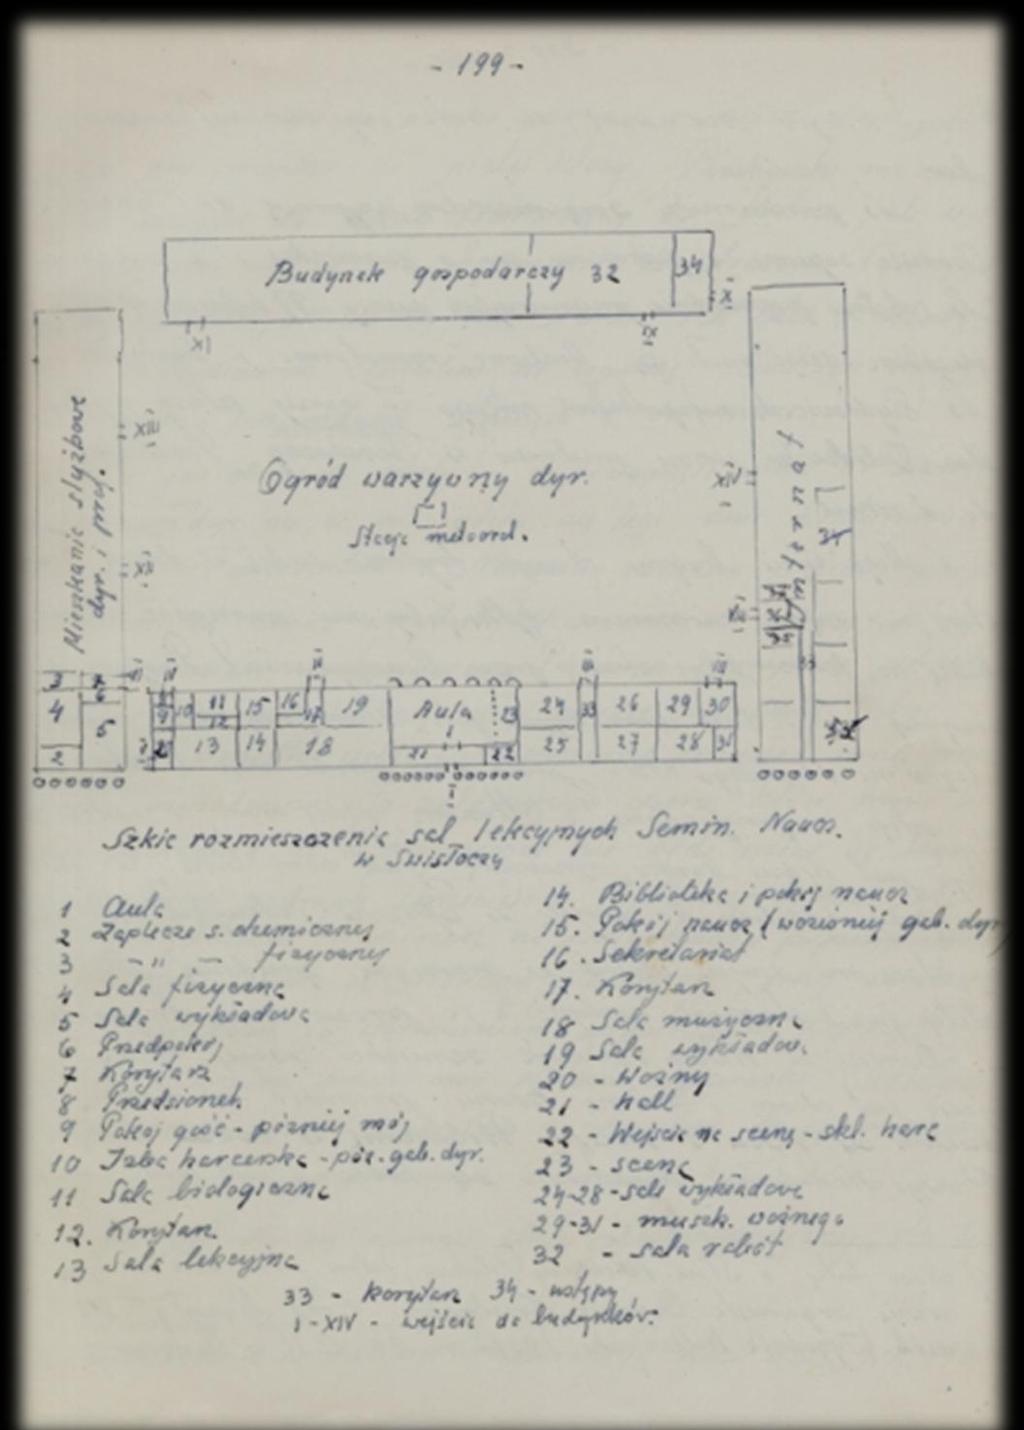 - 199 -
Budynek gospodarczy 32
34
X
XI
IX
Mieszkanie służbowe
dyr. i prof.
XIII
XII
Ogród warzywny dyr.
Stacja meteorol.
Internat
XIV
3 7
4 6 5 2
8 9 10 11 12 13 14 15 16 17 18 19 20
Aula
1
21 22 23
24 25 33 26 27 29 28 30 31
33
I
Szkic rozmieszczenia sal lekcyjnych Semin. Naucz.
w Świsłoczy
1 Aula
2 Zaplecze s. chemicznej
3 - " - fizycznej
4 Sala fizyczna
5 Sala wykładowa
6 Przedpokój
7 Korytarz
8 Przedsionek
9 Pokój gość - później mój
10 Izba harcerska - póź. gab. dyr.
11 Sala biologiczna
12. Korytarz
13 Sala lekcyjna
14. Biblioteka i pokój naucz
15. Pokój naucz (wcześniej gab. dyr
16. Sekretariat
17. Korytarz
18 Sala muzyczna
19 Sala wykładow.
20 - Woźny
21 - hall
22 - Wejście na scenę - skł. harc
23 - scena
24-28 - sale wykładowe
29-31 - mieszk. woźnego
32 - sala robót
33 - korytarz 34 - ustępy
I-XIV - wejścia do budynków.